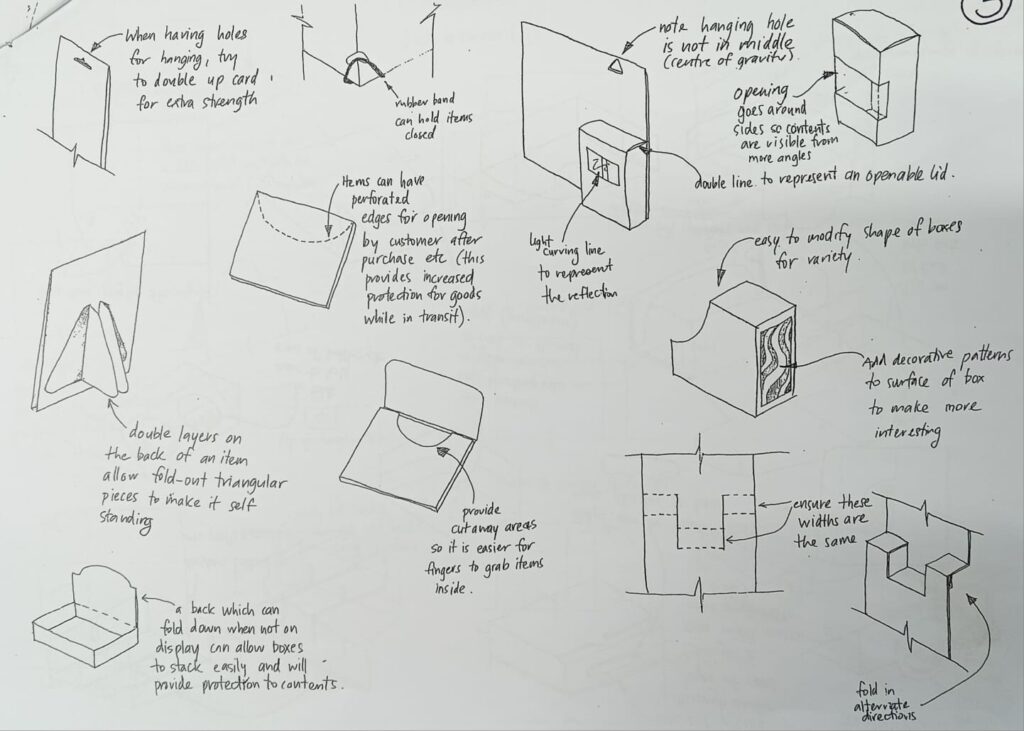 3
When having holes
for hanging, try
to double up card
for extra strength
rubber band
can hold items
closed
note hanging hole
is not in middle
(centre of gravity).
opening
goes around
sides so contents
are visible from
more angles
double line to represent an openable lid.
light
curving line
to represent
the reflection
Items can have
perforated
edges for opening
by customer after
purchase etc (this
provides increased
protection for goods
while in transit).
easy to modify shape of boxes
for variety.
Add decorative patterns
to surface of box
to make more
interesting
double layers on
the back of an item
allow fold-out triangular
pieces to make it self
standing
provide
cutaway areas
so it is easier for
fingers to grab items
inside.
ensure these
widths are
the same
a back which can
fold down when not on
display can allow boxes
to stack easily and will
provide protection to contents.
fold in
alternate
directions